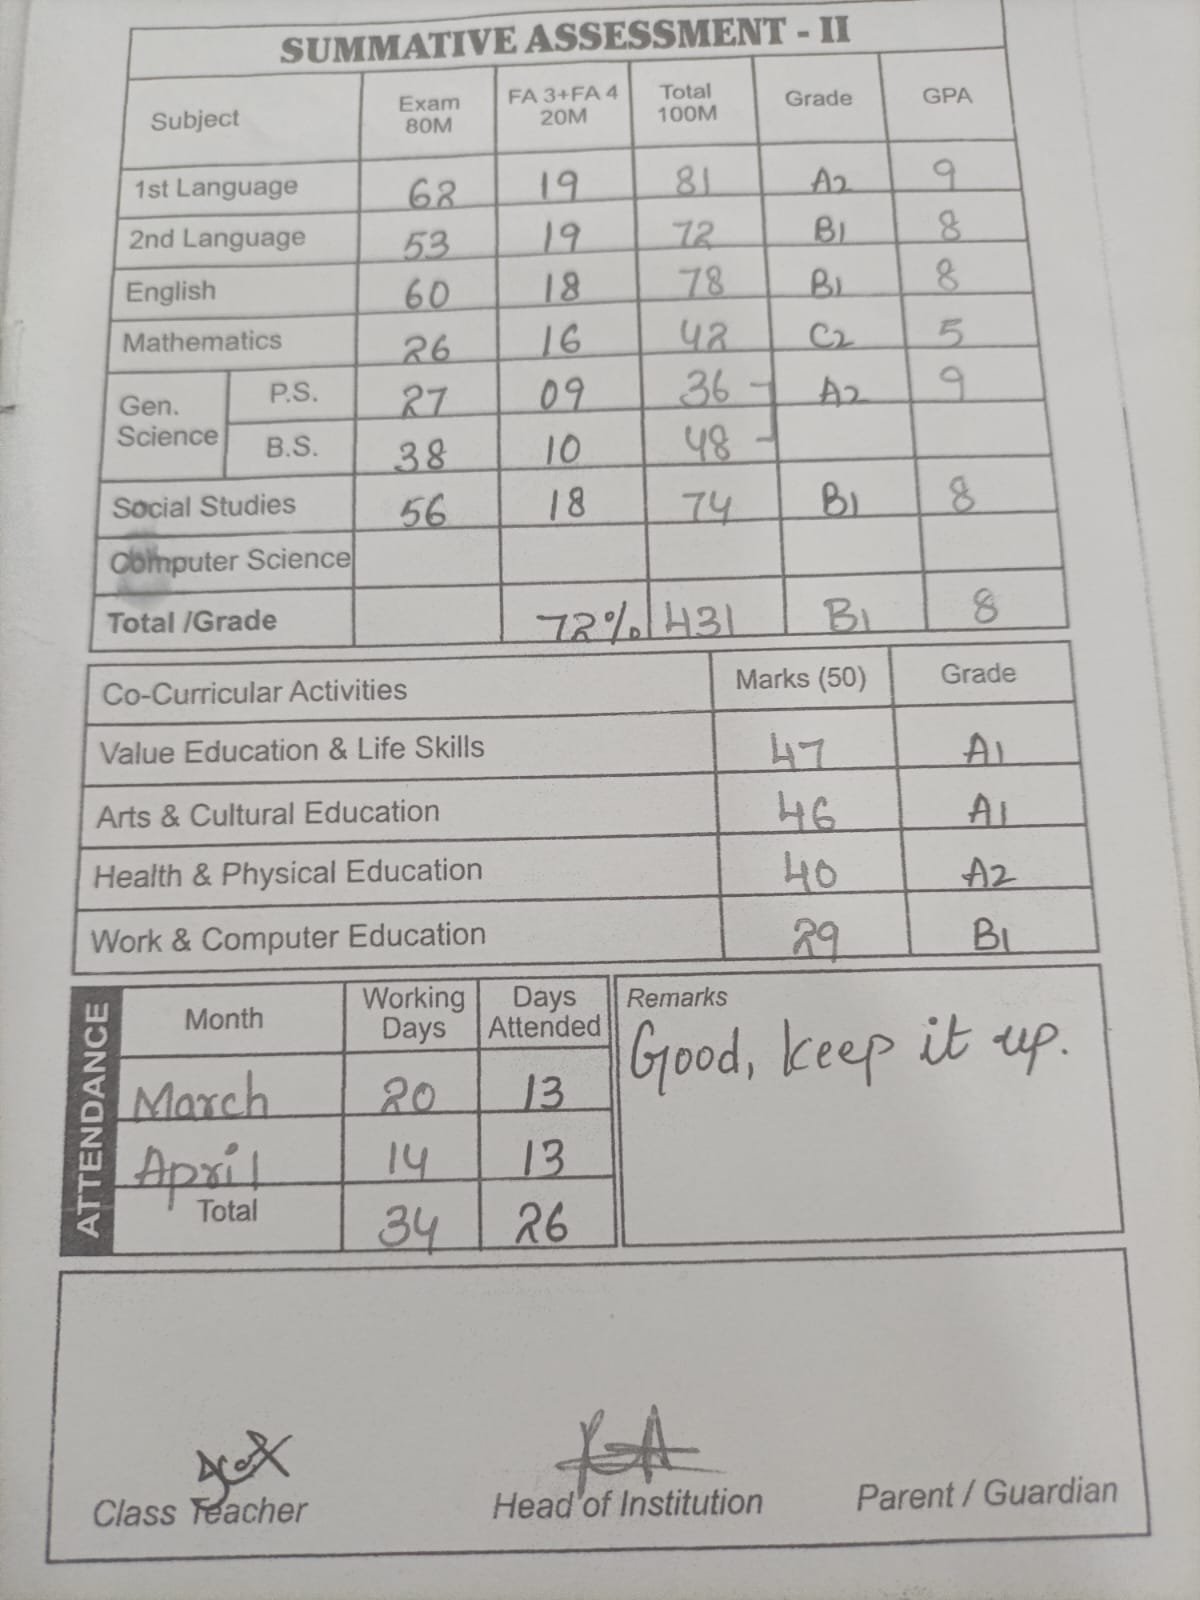 SUMMATIVE ASSESSMENT - II
Subject Exam 80M FA 3+FA 4 20M Total 100M Grade GPA
1st Language 62 19 81 A2 9
2nd Language 53 19 72 B1 8
English 60 18 78 B1 8
Mathematics 26 16 42 C2 5
Gen. Science P.S. 27 09 36 A2 9
B.S. 38 10 48
Social Studies 56 18 74 B1 8
Computer Science
Total /Grade 72% 431 B1 8
Co-Curricular Activities Marks (50) Grade
Value Education & Life Skills 47 A1
Arts & Cultural Education 46 A1
Health & Physical Education 40 A2
Work & Computer Education 29 B1
ATTENDANCE
Month Working Days Days Attended
March 20 13
April 14 13
Total 34 26
Remarks
Good, keep it up.
Class Teacher Head of Institution Parent / Guardian